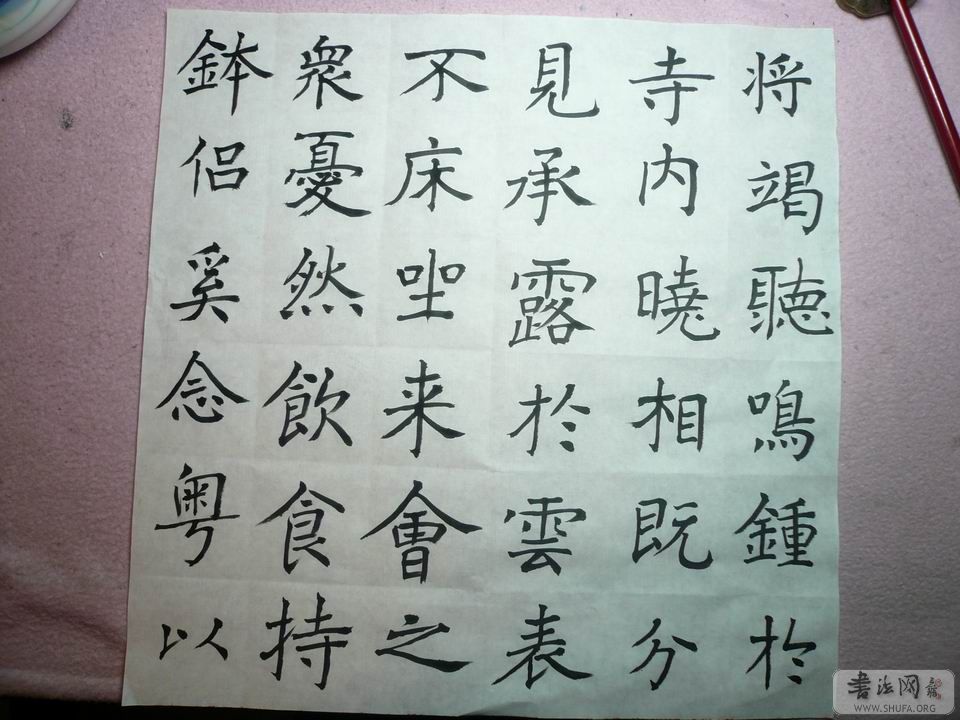 将竭聽鳴鍾於
寺内曉相既分
見承露於雲表
不床坐来會之
衆憂然飲食持
鉢侣奚念粤以
書法网
WWW.SHUFA.ORG